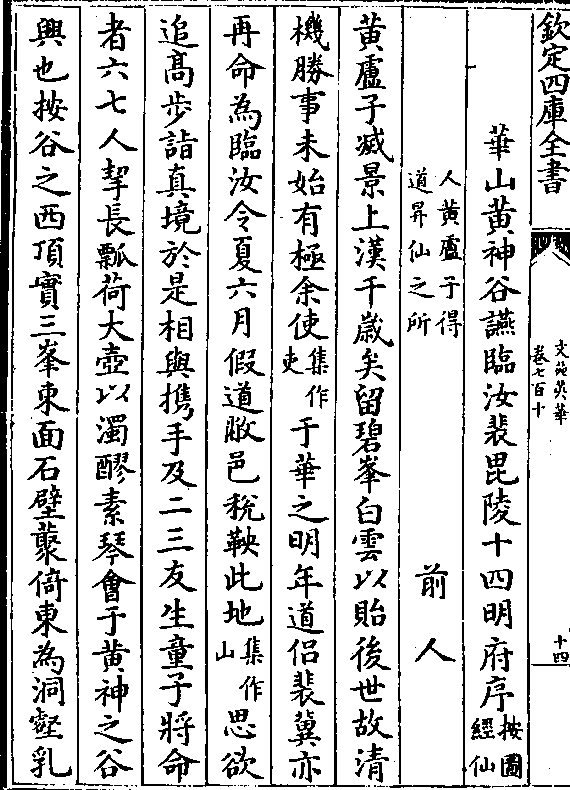 欽定四庫全書
文苑英華
卷七百十
十四
華山黄神谷讌臨汝裴毘陵十四明府序按圖經仙
人黄盧子得道昇仙之所
前人
黄盧子滅景上漢千歳矣留碧峯白雲以貽後世故清
機勝事未始有極余使集作吏于華之明年道侣裴兾亦
再命為臨汝令夏六月假道敝邑税鞅此地集作山思欲
追髙步詣真境於是相與攜手及二三友生童子將命
者六七人挈長瓢荷大壺以濁醪素琴會于黄神之谷
興也按谷之西頂實三峯東面石壁藂倚東為洞壑乳